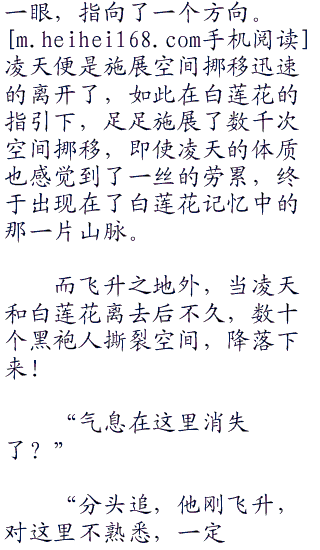 一眼，指向了一个方向。
[m.heihei168.com手机阅读]
凌天便是施展空间挪移迅速
的离开了，如此在白莲花的
指引下，足足施展了数千次
空间挪移，即使凌天的体质
也感觉到了一丝的劳累，终
于出现在了白莲花记忆中的
那一片山脉。
而飞升之地外，当凌天
和白莲花离去后不久，数十
个黑袍人撕裂空间，降落下
来！
“气息在这里消失
了？”
“分头追，他刚飞升，
对这里不熟悉，一定